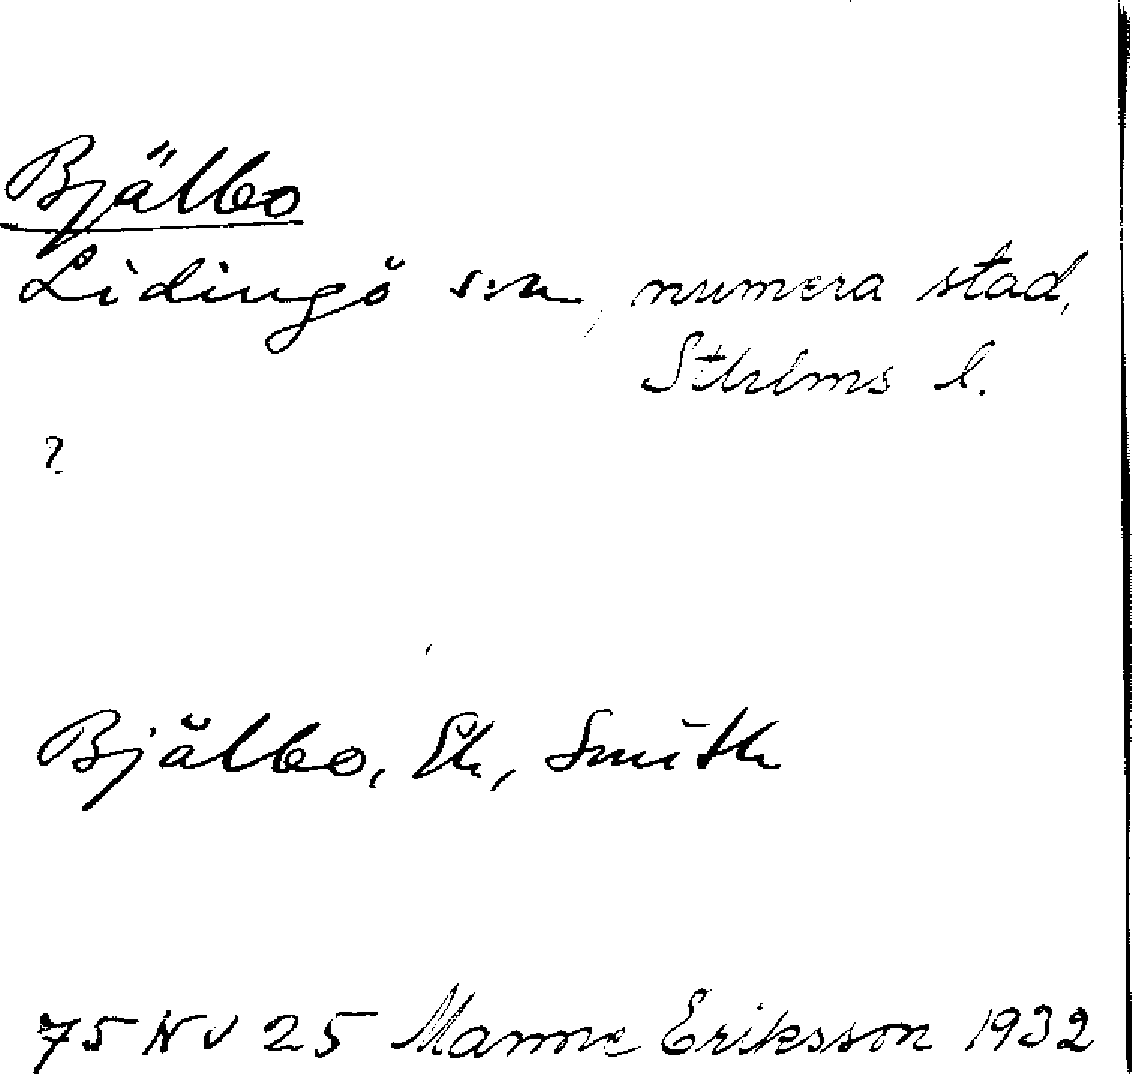 Bjälbo
Lidingö sn, numera stad,
Sthlms l.
?
Bjälbo, Ek, Smith
75 NV 25 Manne Eriksson 1932